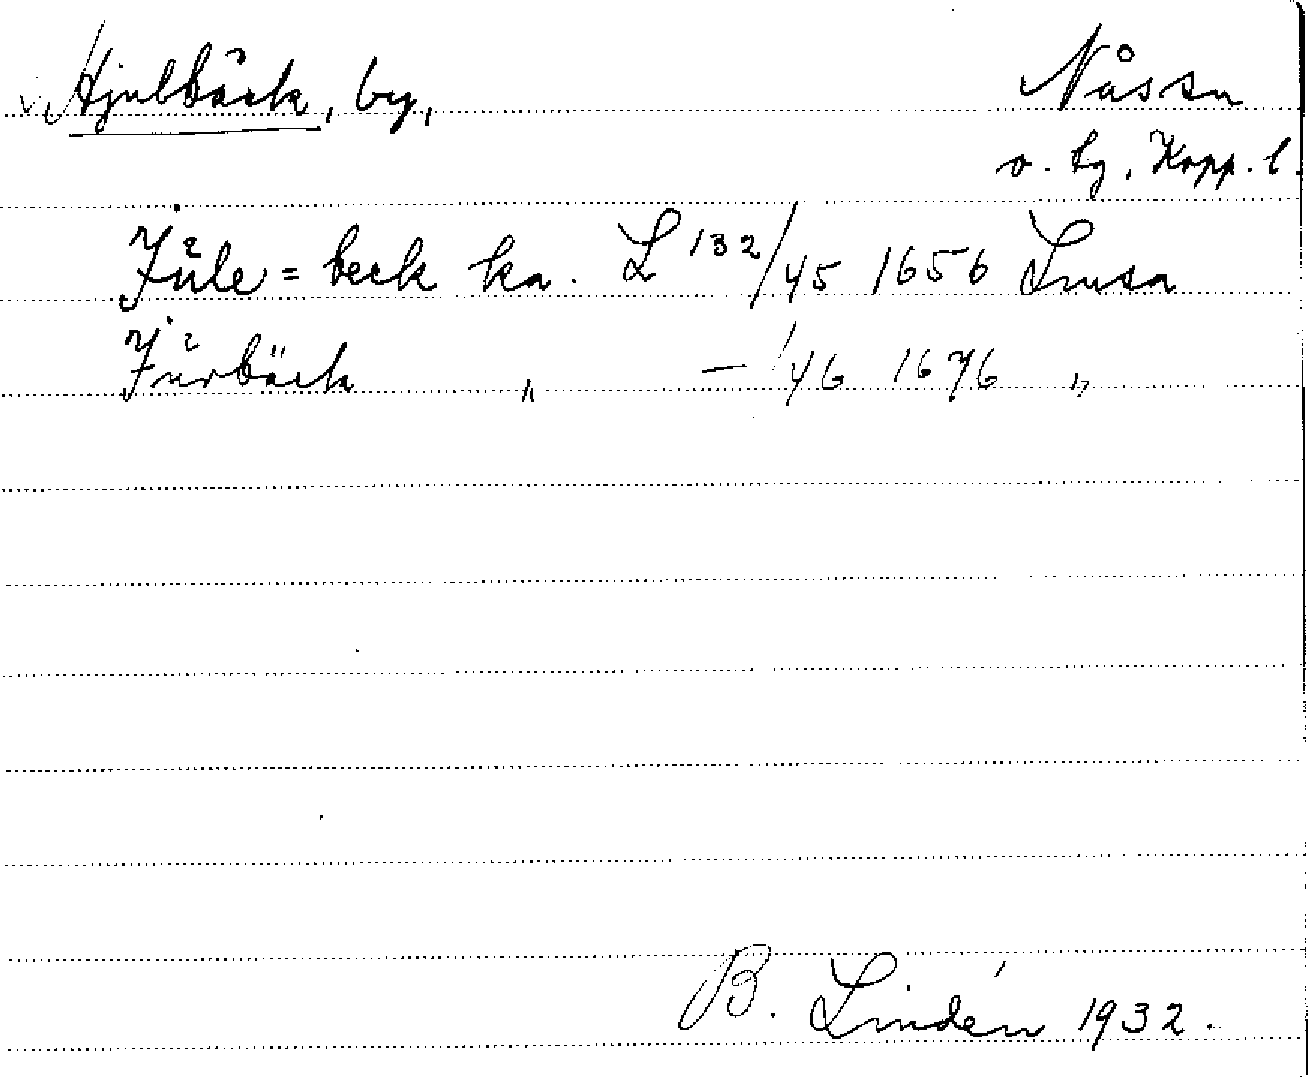 Hjulbäck, by,
Nåssn
s. hg, Kopp. l.
Jůle=beck ka. L 132/45 1656 Lnusa
Jůrbäck „ — /46 1676 „
B. Lindén 1932.